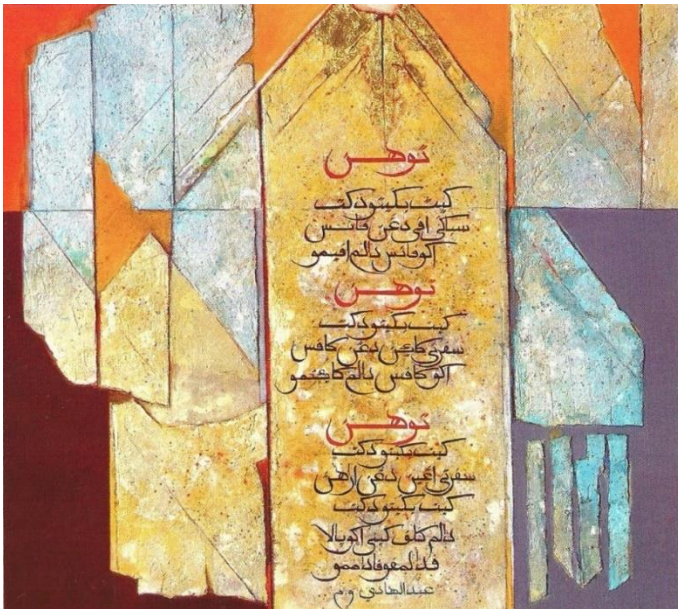 توهن
كيت بكيتو دكت
سبكي افي دغن فانس
اكو فانس دالم افيمو
توهن
كيت بكيتو دكت
سفرتي كاين دغن كافس
اكو كافس دالم كاينمو
توهن
كيت بكيتو دكت
سفرتي اغين دغن ارهن
كيت بكيتو دكت
دالم كلف كيني اكو
عبدالهادي و م